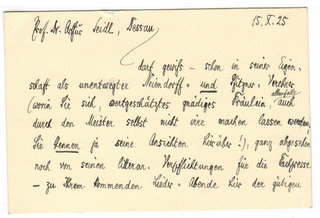 Prof. Dr. Arthur Seidl, Dessau 15.X.25
darf gewiß – schon in seiner Eigen-
schaft als unentwegter Reindorff- und Pfitzner-Verehrer
allenfalls
(worin Sie sich, wertgeschätztes gnädiges Fräulein auch
durch den Meister selbst nicht irre machen lassen werden,
Sie kennen ja seine Ansichten hierüber!), ganz abgesehen
noch von seinen literar. Verpflichtungen für die Fachpresse
– zu Ihrem kommenden Lieder-Abende hier der gütigen